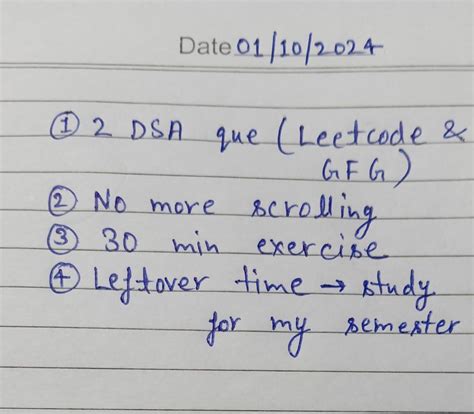 Date 01/10/2024
① 2 DSA que (Leetcode &
GFG)
② No more scrolling
③ 30 min exercise
④ Leftover time → study
for my semester